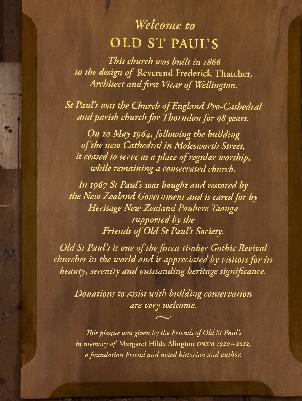 Welcome to
OLD ST PAUL'S
This church was built in 1866
to the design of Reverend Frederick Thatcher,
Architect and first Vicar of Wellington.
St Paul's was the Church of England Pro-Cathedral
and parish church for Thorndon for 98 years.
On 10 May 1964, following the building
of the new Cathedral in Molesworth Street,
it ceased to serve as a place of regular worship,
while remaining a consecrated church.
In 1967 St Paul's was bought and restored by
the New Zealand Government and is cared for by
Heritage New Zealand Pouhere Taonga
supported by the
Friends of Old St Paul's Society.
Old St Paul's is one of the finest timber Gothic Revival
churches in the world and is appreciated by visitors for its
beauty, serenity and outstanding heritage significance.
Donations to assist with building conservation
are very welcome.
This plaque was given by the Friends of Old St Paul's
in memory of Margaret Hilda Alington ONZM 1920–2012,
a foundation Friend and noted historian and author.